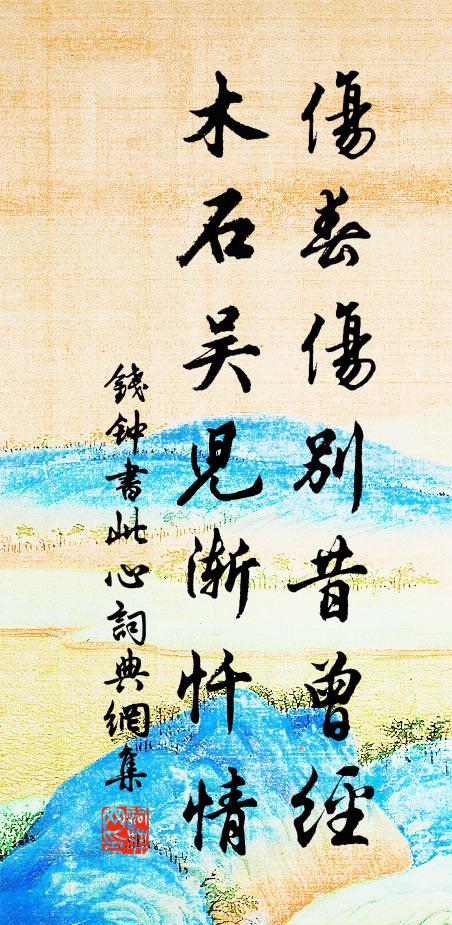 傷春傷別昔曾經
木石吴兒漸忏情
錢钟書此心詞典網集